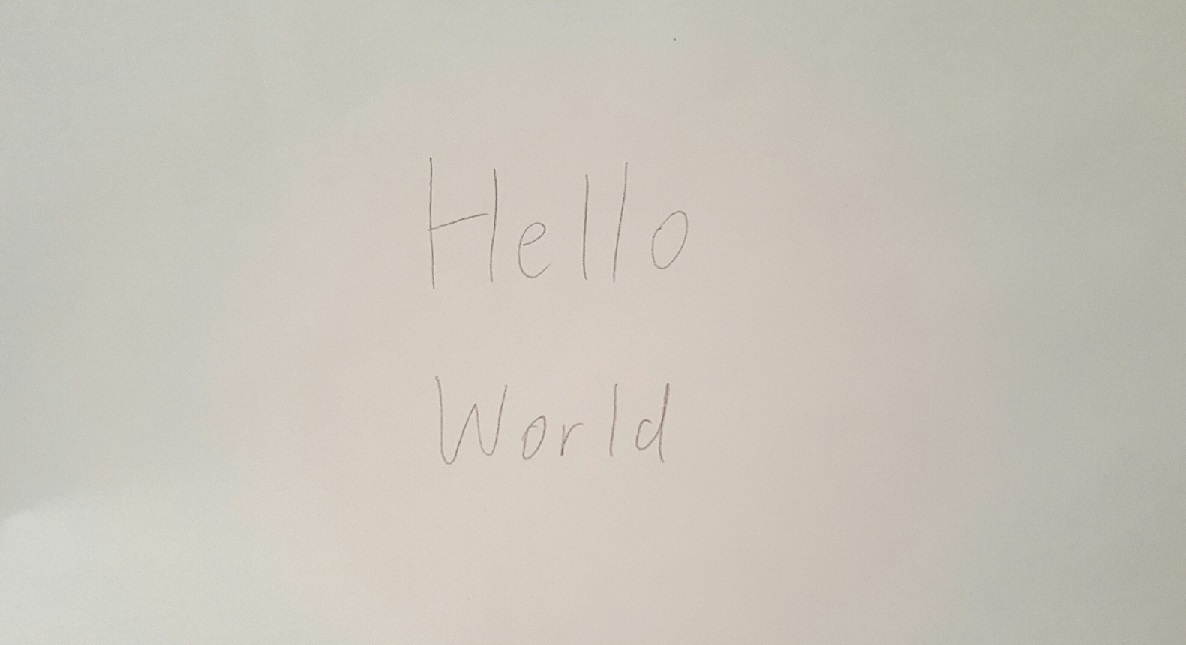 Hello
World